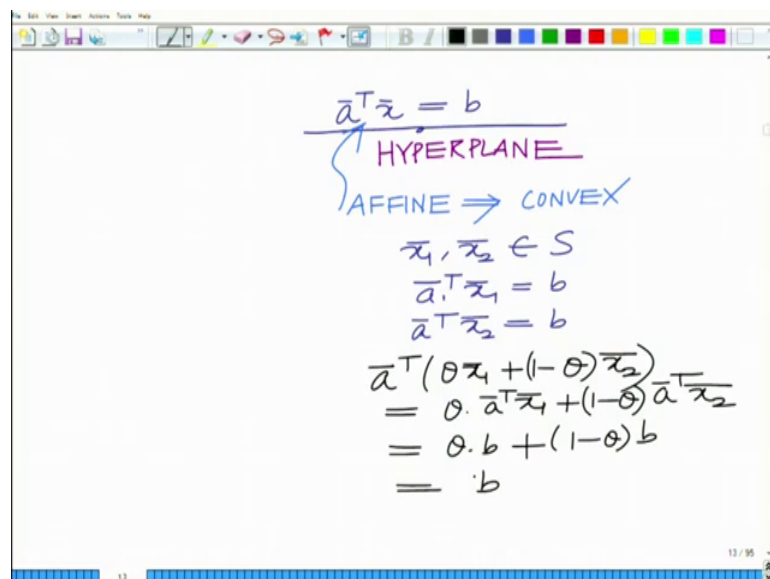 File Edit View Insert Actions Tools Help
B I
āᵀx̄ = b
HYPERPLANE
AFFINE ⇒ CONVEX
x̄₁, x̄₂ ∈ S
āᵀx̄₁ = b
āᵀx̄₂ = b
āᵀ(θx̄₁ + (1-θ)x̄₂)
= θ. āᵀx̄₁ + (1-θ) āᵀx̄₂
= θ.b + (1-θ)b
= b
13 / 95
13